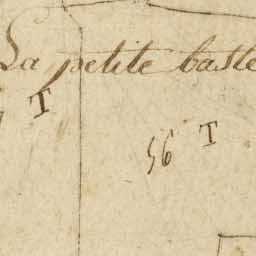 La petite baste
T
56 T